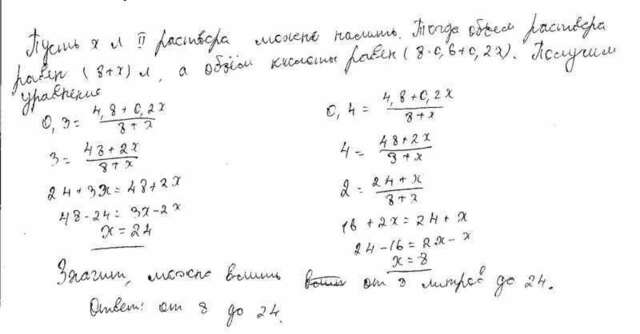 Пусть x л II раствора можно налить. Тогда объем раствора
равен (8+x) л, а объём кислоты равен (8·0,6+0,2x). Получим
уравнение
0,3 = (4,8+0,2x)/(8+x)
3 = (48+2x)/(8+x)
24+3x = 48+2x
48-24 = 3x-2x
x = 24
0,4 = (4,8+0,2x)/(8+x)
4 = (48+2x)/(8+x)
2 = (24+x)/(8+x)
16+2x = 24+x
24-16 = 2x-x
x = 8
Значит, можно влить от 8 литров до 24.
Ответ: от 8 до 24.